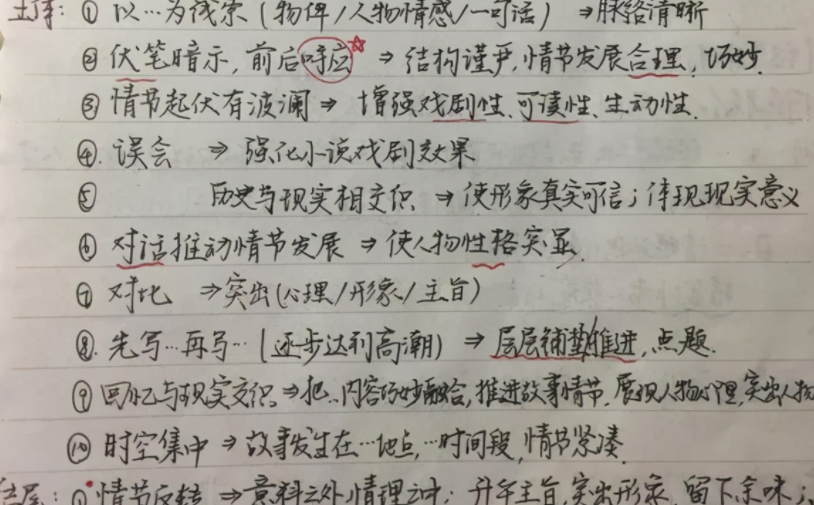 主体：① 以…为线索（物件/人物情感/一句话）⇒脉络清晰
② 伏笔暗示，前后呼应☆ ⇒ 结构谨严，情节发展合理，巧妙.
③ 情节起伏有波澜 ⇒ 增强戏剧性、可读性、生动性.
④ 误会 ⇒ 强化小说戏剧效果
⑤ 历史与现实相交织 ⇒ 使形象真实可信；体现现实意义
⑥ 对话推动情节发展 ⇒ 使人物性格突显.
⑦ 对比 ⇒突出（心理/形象/主旨）
⑧. 先写…再写…（逐步达到高潮）⇒ 层层铺垫推进，点题.
⑨ 回忆与现实交织⇒把…内容巧妙融合，推进故事情节，展现人物心理，突出人物
⑩ 时空集中 ⇒ 故事发生在…地点，…时间段，情节紧凑.
结尾：① 情节反转 ⇒意料之外情理之中；升华主旨，突出形象，留下余味；